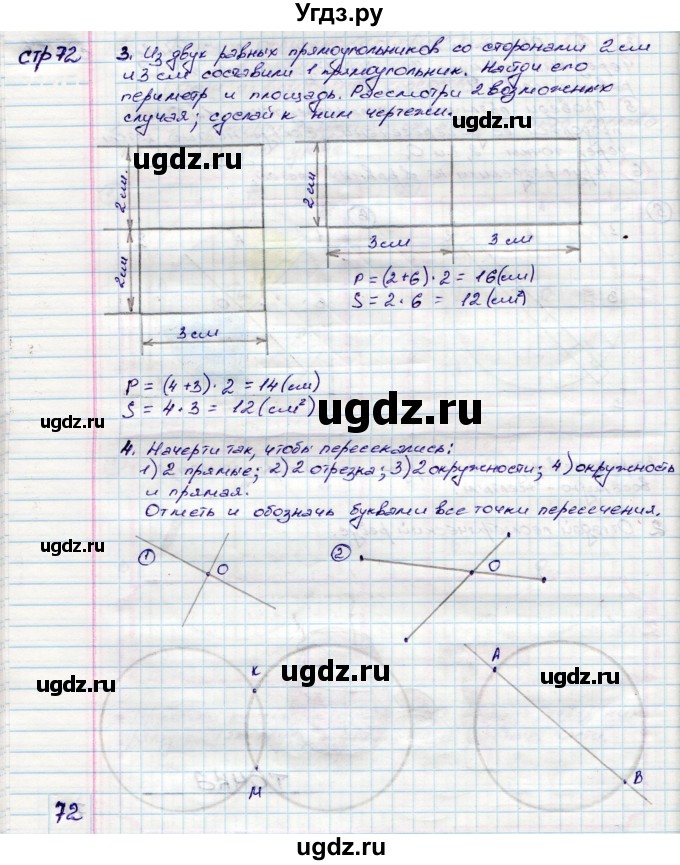 Угдз.ру
стр 72
3. Из двух равных прямоугольников со сторонами 2 см
и 3 см составили 1 прямоугольник. Найди его
периметр и площадь. Рассмотри 2 возможных
случая; сделай к ним чертежи.
ugdz.ru
ugdz.ru
ugdz.ru
2 см.
2 см
2 см
3 см
3 см
ugdz.ru
P = (2+6) · 2 = 16 (см)
S = 2 · 6 = 12 (см²)
3 см
P = (4+3) · 2 = 14 (см)
S = 4 · 3 = 12 (см²)
ugdz.ru
ugdz.ru
4. Начерти так, чтобы пересекались:
1) 2 прямые; 2) 2 отрезка; 3) 2 окружности; 4) окружность
и прямая.
Отметь и обозначь буквами все точки пересечения.
ugdz.ru
ugdz.ru
1
O
2
O
A
K
ugdz.ru
ugdz.ru
ugdz.ru
M
B
72
ugdz.ru
ugdz.ru